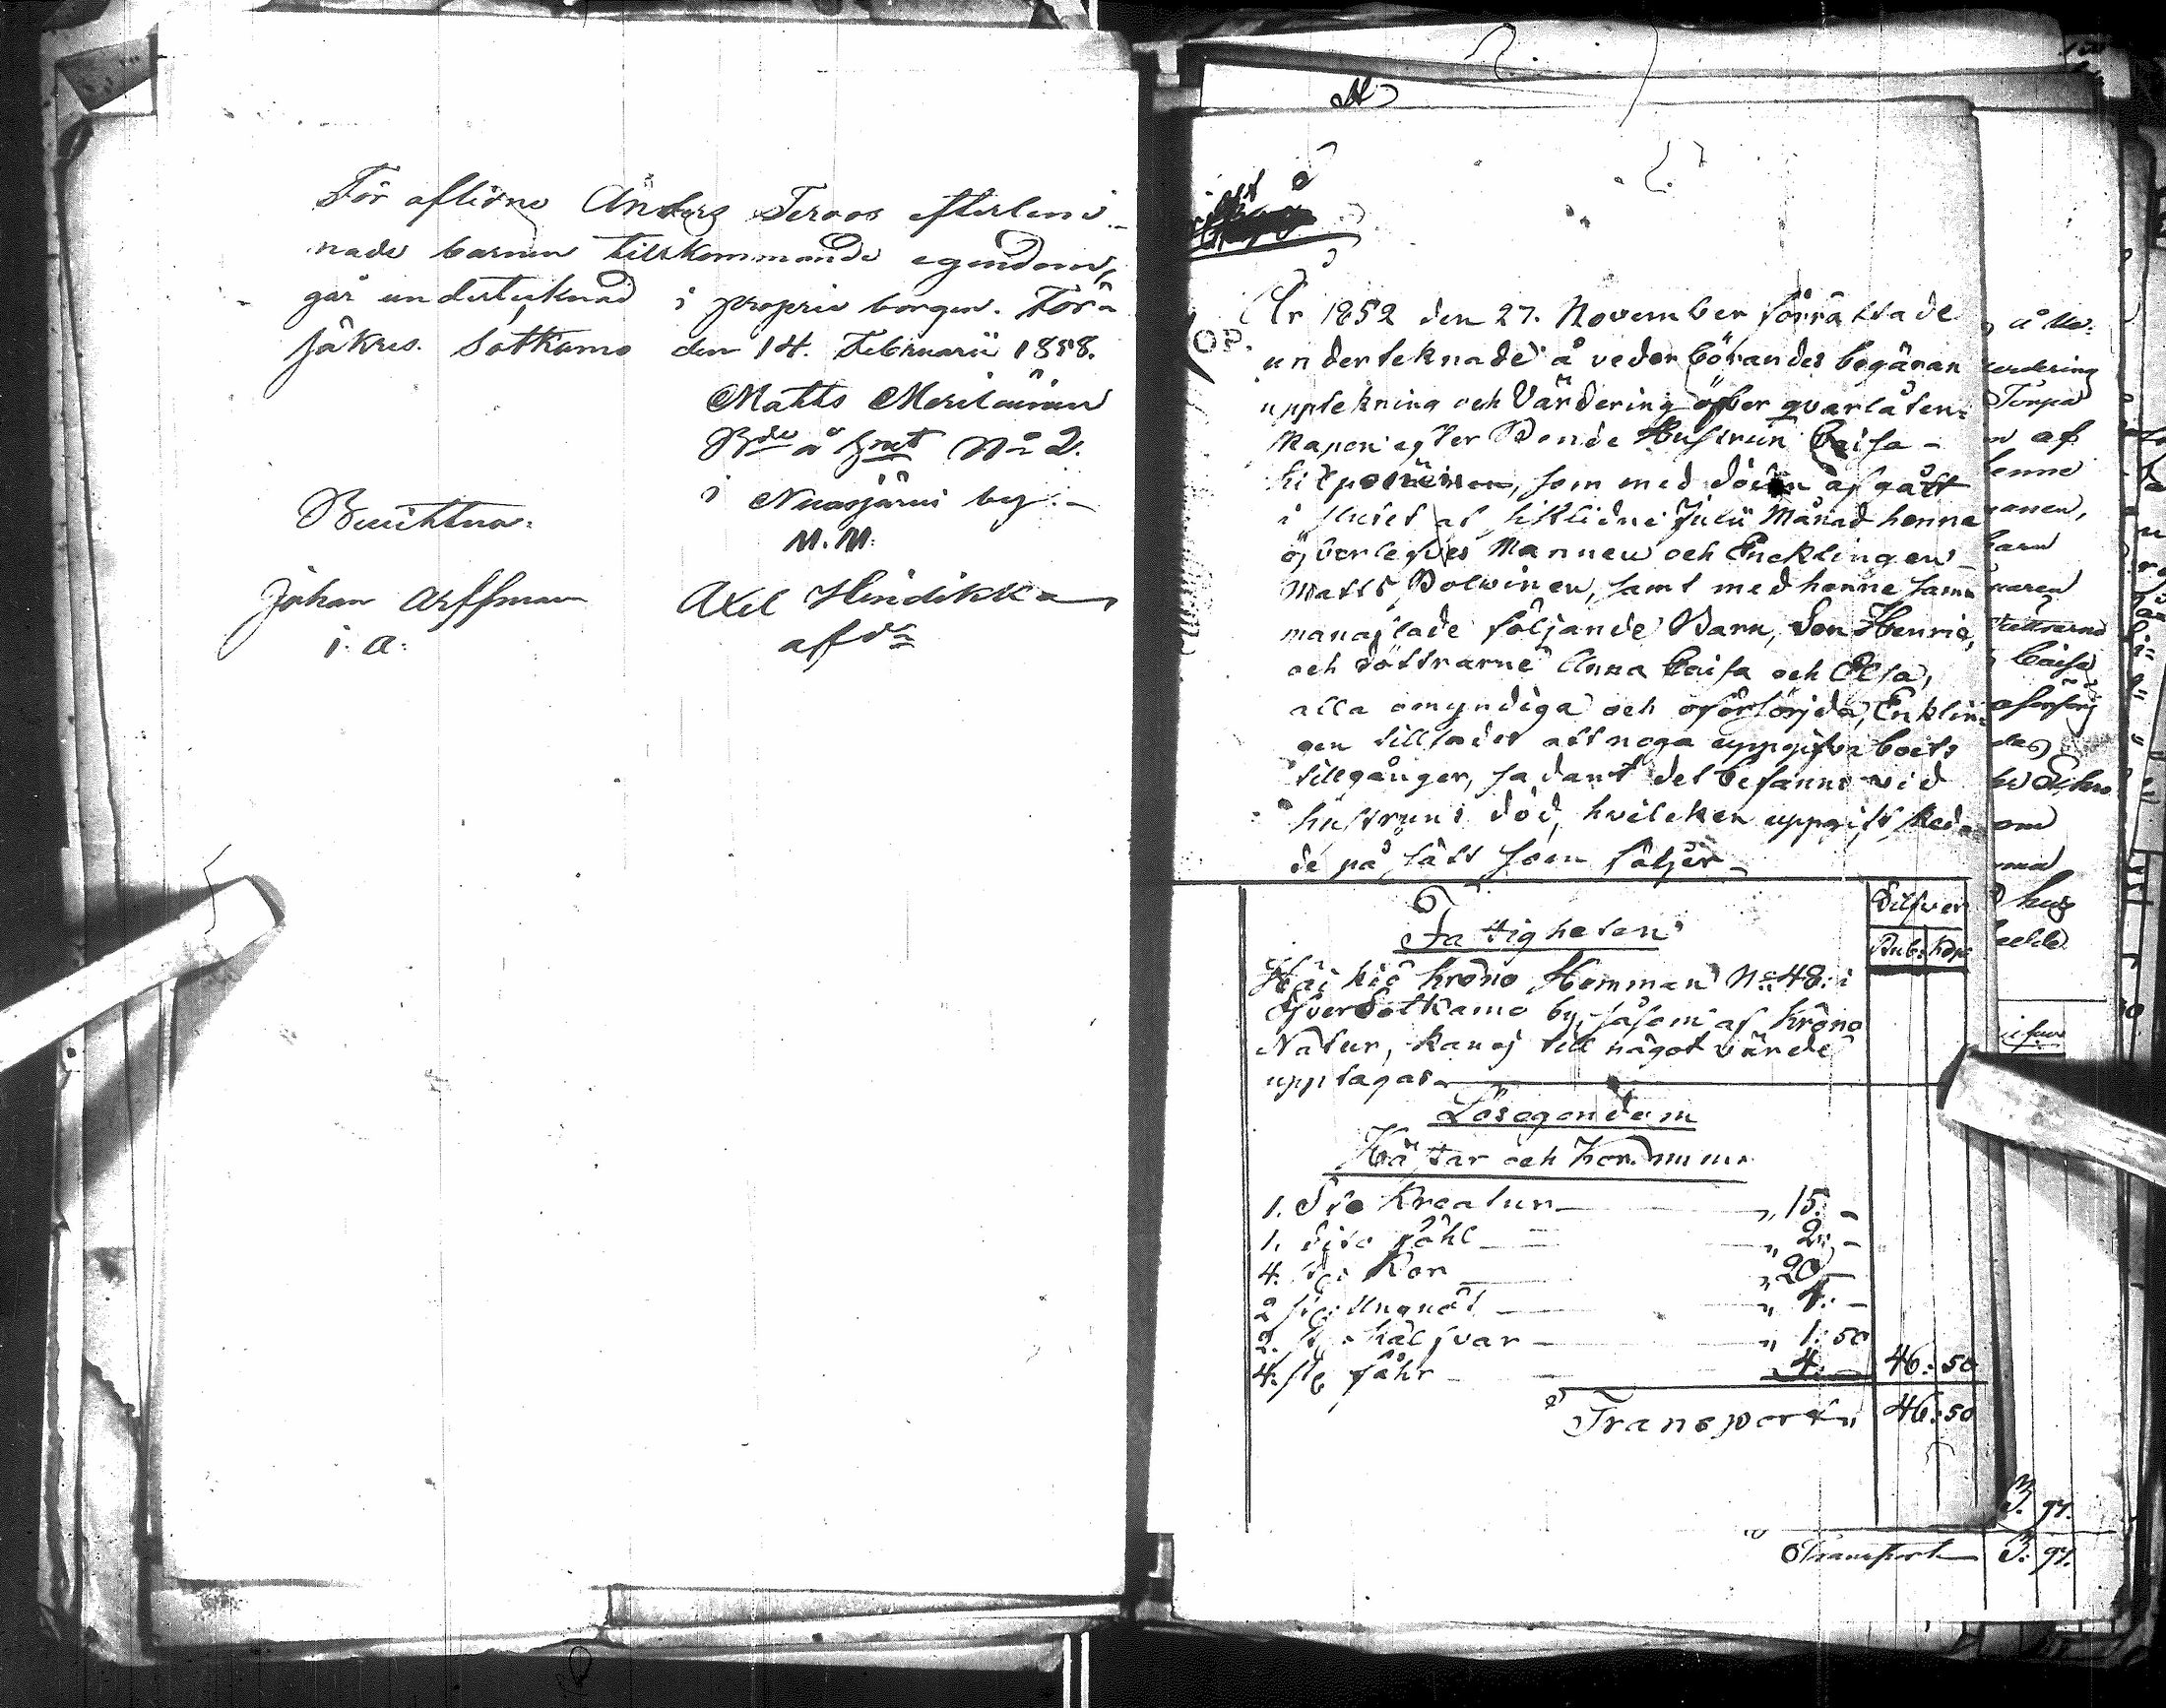 För aflidne Anders Tervos efterlem-
nade barnen tillkommande egendom,
går undertecknad i proprie borgen. För-
säkras. Sotkamo den 14. Februarii 1858.
Matts Meriläinen
Bde å hmt No 2.
i Nuasjärvi by.-
M. M.
Bevittna:
Johan Arffman
i. a.
Axel Hindikka
afd
N
År 1852 den 27. November förrättade
underteknade å vederbörandes begäran
upptekning och Värdering öfver qvarlåten-
skapen efter Bonde Hustrun Caisa
som med döden afgått
i slutet af sistlidne Julii Månad henne
öfverlefves Mannen och Encklingen
Matts Polwinen, samt med henne samm
manaflade följande Barn, Son Henric,
och döttrarne Anna Caisa och Elsa,
alla omyndiga och oförsörjda, Enklin-
gen tillsades att noga uppgifva boets
tillgånger, sadant det befanns vid
hustruns död, hvilcken uppgift skede
de på sätt som följer-
Silfver
Fastigheten
Rub. Kop.
krono Hemman No 48. i
Öfversotkamo by, såsom af Krono
Natur, kan ej till något värde
upptagas.
Lösegendom
Hästar och
1. Sto Kreatur - " 15. -
1. dito fåhl - " 2. -
4. st: Kor - " 20 -
2 st: Ungnöt - " 4. -
2. st: kalfvar - " 1. 50
4. st: fåhr - 4. - 46. 50
Transport " 46. 50
3. 97.
Transport 3. 97.